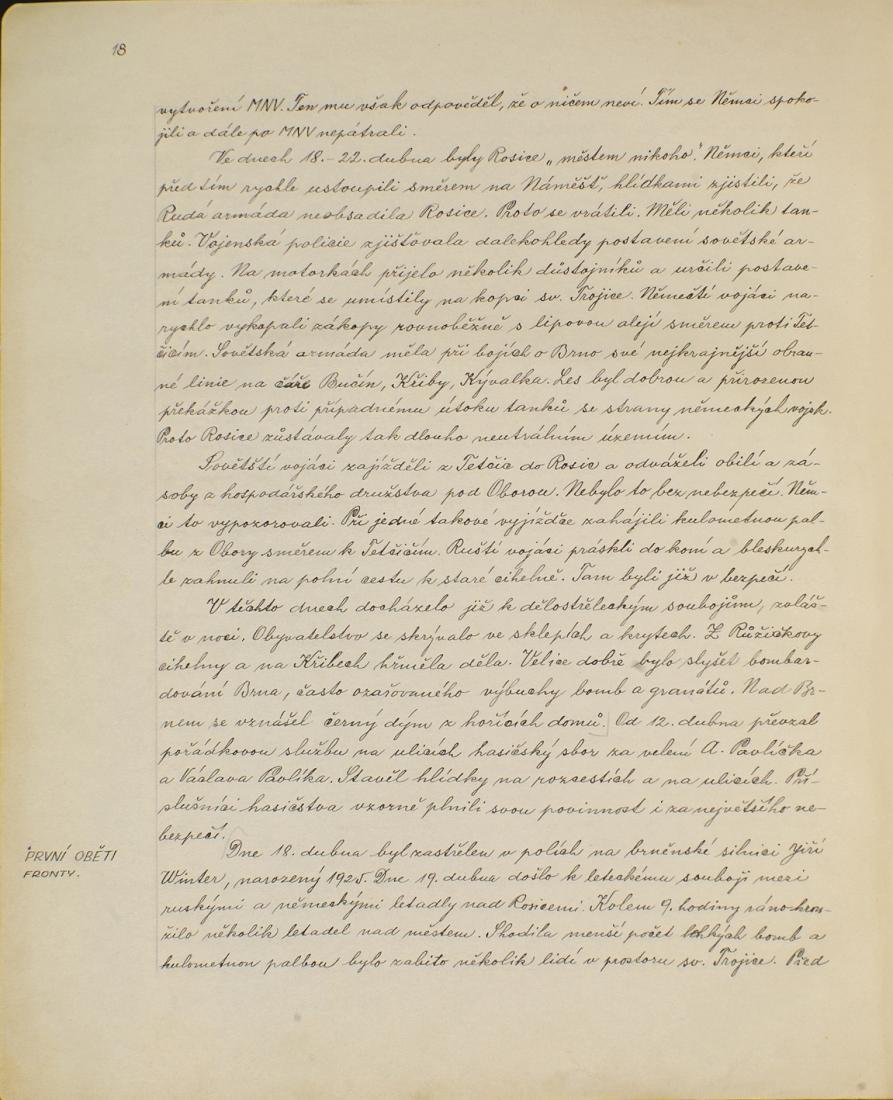 18
vytvoření MNV. Ten mu však odpověděl, že o ničem neví. Tím se Němci spoko-
jili a dále po MNV nepátrali.
Ve dnech 18.-22. dubna byly Rosice „městem nikoho". Němci, kteří
před tím rychle ustoupili směrem na Náměšť, hlídkami zjistili, že
Rudá armáda neobsadila Rosice. Proto se vrátili. Měli několik tan-
ků. Vojenská policie zjišťovala dalekohledy postavení sovětské ar-
mády. Na motorkách přijelo několik důstojníků a určili postave-
ní tanků, které se umístily na kopci sv. Trojice. Němečtí vojáci na-
rychlo vykopali zákopy rovnoběžně s lipovou alejí směrem proti Tet-
čicím. Sovětská armáda měla při bojích o Brno své nejkrajnější obran-
né linie na čáře Bučín, Křiby, Kývalka. Les byl dobrou a přirozenou
překážkou proti případnému útoku tanků se strany německých vojsk.
Proto Rosice zůstávaly tak dlouho neutrálním územím.
Sovětští vojáci zajížděli z Tetčic do Rosic a odváželi obilí a zá-
soby z hospodářského družstva pod Oborou. Nebylo to bez nebezpečí. Něm-
ci to vypozorovali. Při jedné takové vyjížďce zahájili kulometnou pal-
bu z Obory směrem k Tetčicím. Ruští vojáci práskli do koní a bleskurych-
le zahnuli na polní cestu k staré cihelně. Tam byli již v bezpečí.
V těchto dnech docházelo již k dělostřeleckým soubojům, zvláš-
tě v noci. Obyvatelstvo se skrývalo ve sklepích a krytech. Z Růžičkovy
cihelny a na Křibech hřměla děla. Velice dobře bylo slyšet bombar-
dování Brna, často ozařovaného výbuchy bomb a granátů. Nad Br-
nem se vznášel černý dým z hořících domů. Od 12. dubna převzal
pořádkovou službu na ulicích hasičský sbor za velení A. Pavlíčka
a Václava Pavlíka. Stavěl hlídky na rozcestích a na ulicích. Pří-
slušníci hasičstva vzorně plnili svou povinnost i za největšího ne-
bezpečí.
PRVNÍ OBĚTI
FRONTY.
Dne 18. dubna byl zastřelen v polích na brněnské silnici Jiří
Winter, narozený 1925. Dne 19. dubna došlo k leteckému souboji mezi
ruskými a německými letadly nad Rosicemi. Kolem 9. hodiny ráno krou-
žilo několik letadel nad městem. Shodila menší počet lehkých bomb a
kulometnou palbou bylo zabito několik lidí v prostoru sv. Trojice. Před